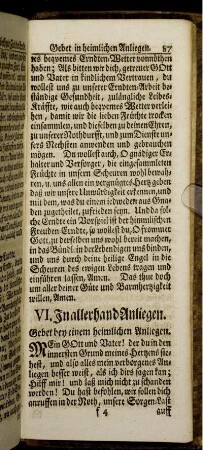 Gebet in heimlichen Anliegen. 87
res bequemes Erndten-Wetter vonnöthen
haben; Als bitten wir dich, getreuer GOtt
und Vater in kindlichem Vertrauen, du
wollest uns zu unserer Erndten-Arbeit be-
ständige Gesundheit, zulängliche Leibes-
Kräffte, wie auch bequemes Wetter verlei-
hen, damit wir die lieben Früchte trocken
einsammlen, und dieselben zu deinen Ehren,
zu unserer Nothdurfft, und zum Dienst un-
sers Nechsten anwenden und gebrauchen
mögen. Du wollest auch, O gnädiger Er-
halter und Versorger, die eingesammleten
Früchte in unsern Scheuren wohl bewah-
ren, u. uns allen ein vergnügtes Hertz geben
daß wir unsre Unwürdigkeit erkennen, und
mit dem, was du einem jedweden aus Gna-
den zugetheilet, zufrieden seyn. Und da solche
Erndte ein Vorspiel ist der himmlischen
Freuden-Erndte, so wollest du, O frommer
GOtt, zu derselben uns wohl bereit machen,
in das Bündl. der Lebendigen uns binden,
und uns durch deine heilige Engel in die
Scheuren des ewigen Lebens tragen und
einführen lassen, Amen. Das thue doch
um aller deiner Güte und Barmhertzigkeit
willen, Amen.
VI. In allerhand Anliegen.
Gebet bey einem heimlichen Anliegen.
MEin GOtt und Vater! der du in den
innersten Grund meines Hertzens sie-
hest, und also alles mein verborgenes An-
liegen besser weist, als ich dirs sagen kan;
Hülff mir! und laß mich nicht zu schanden
werden! Du hast befohlen, wir sollen dich
anruffen in der Noth, unsere Sorgen-Last
f 4 auff